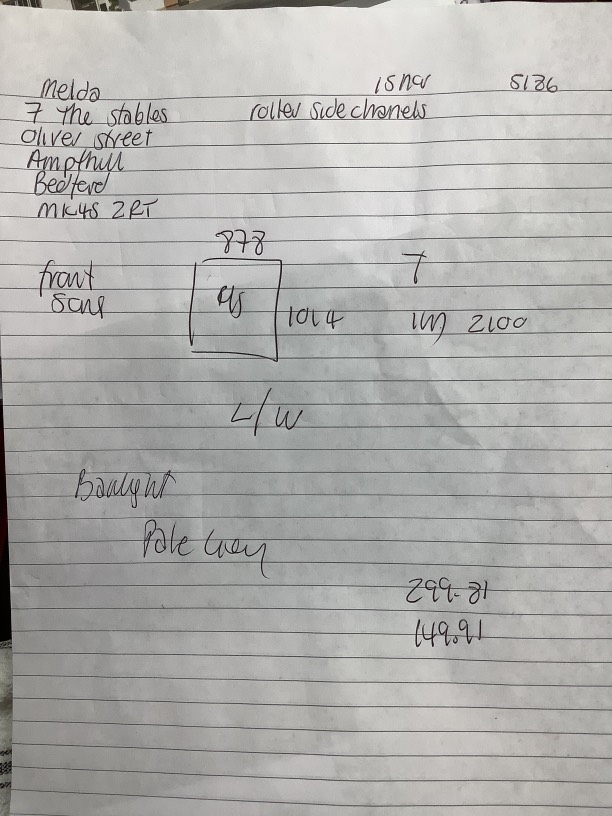 Melda 15 Nov 5136
7 The stables roller side chanels
Oliver street
Ampthill
Bedford
MK45 2RT
878
front 7
1014 1m 2100
L/W
Pale Grey
299.81
149.91